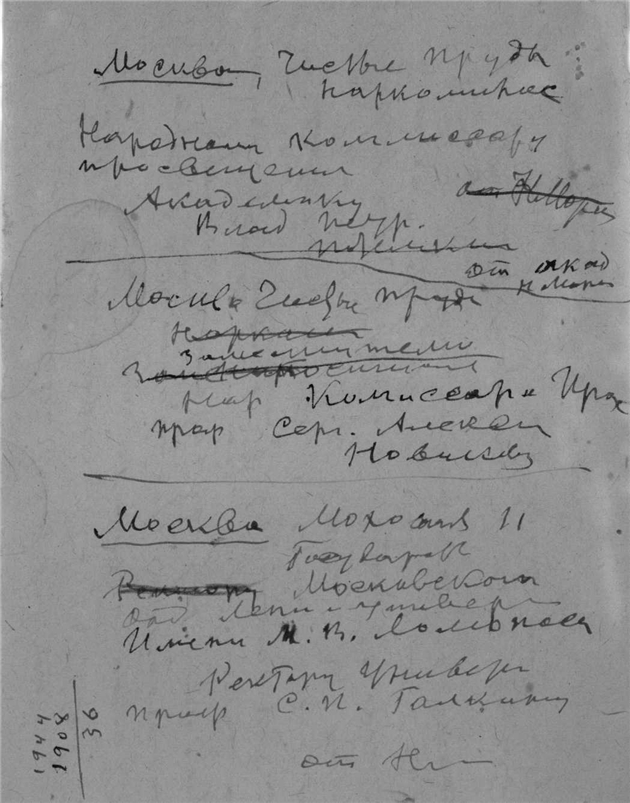 Москва, Чистые пруды
Наркоминрос
Народному комиссару
просвещения
Академику
от Н. Мор
Влад Петр.
Потемкин
от акад
Н Мороз
Москва Чистые пруды
Заместителю
Нар Комиссара Прос
проф Серг. Алексан
Новикову
Москва Моховая 11
Государств
Ректору Московского
орд Лени универс
Имени М. В. Ломонос
Ректору Универс
проф С. П. Галкину
от Н
36
1908
1944